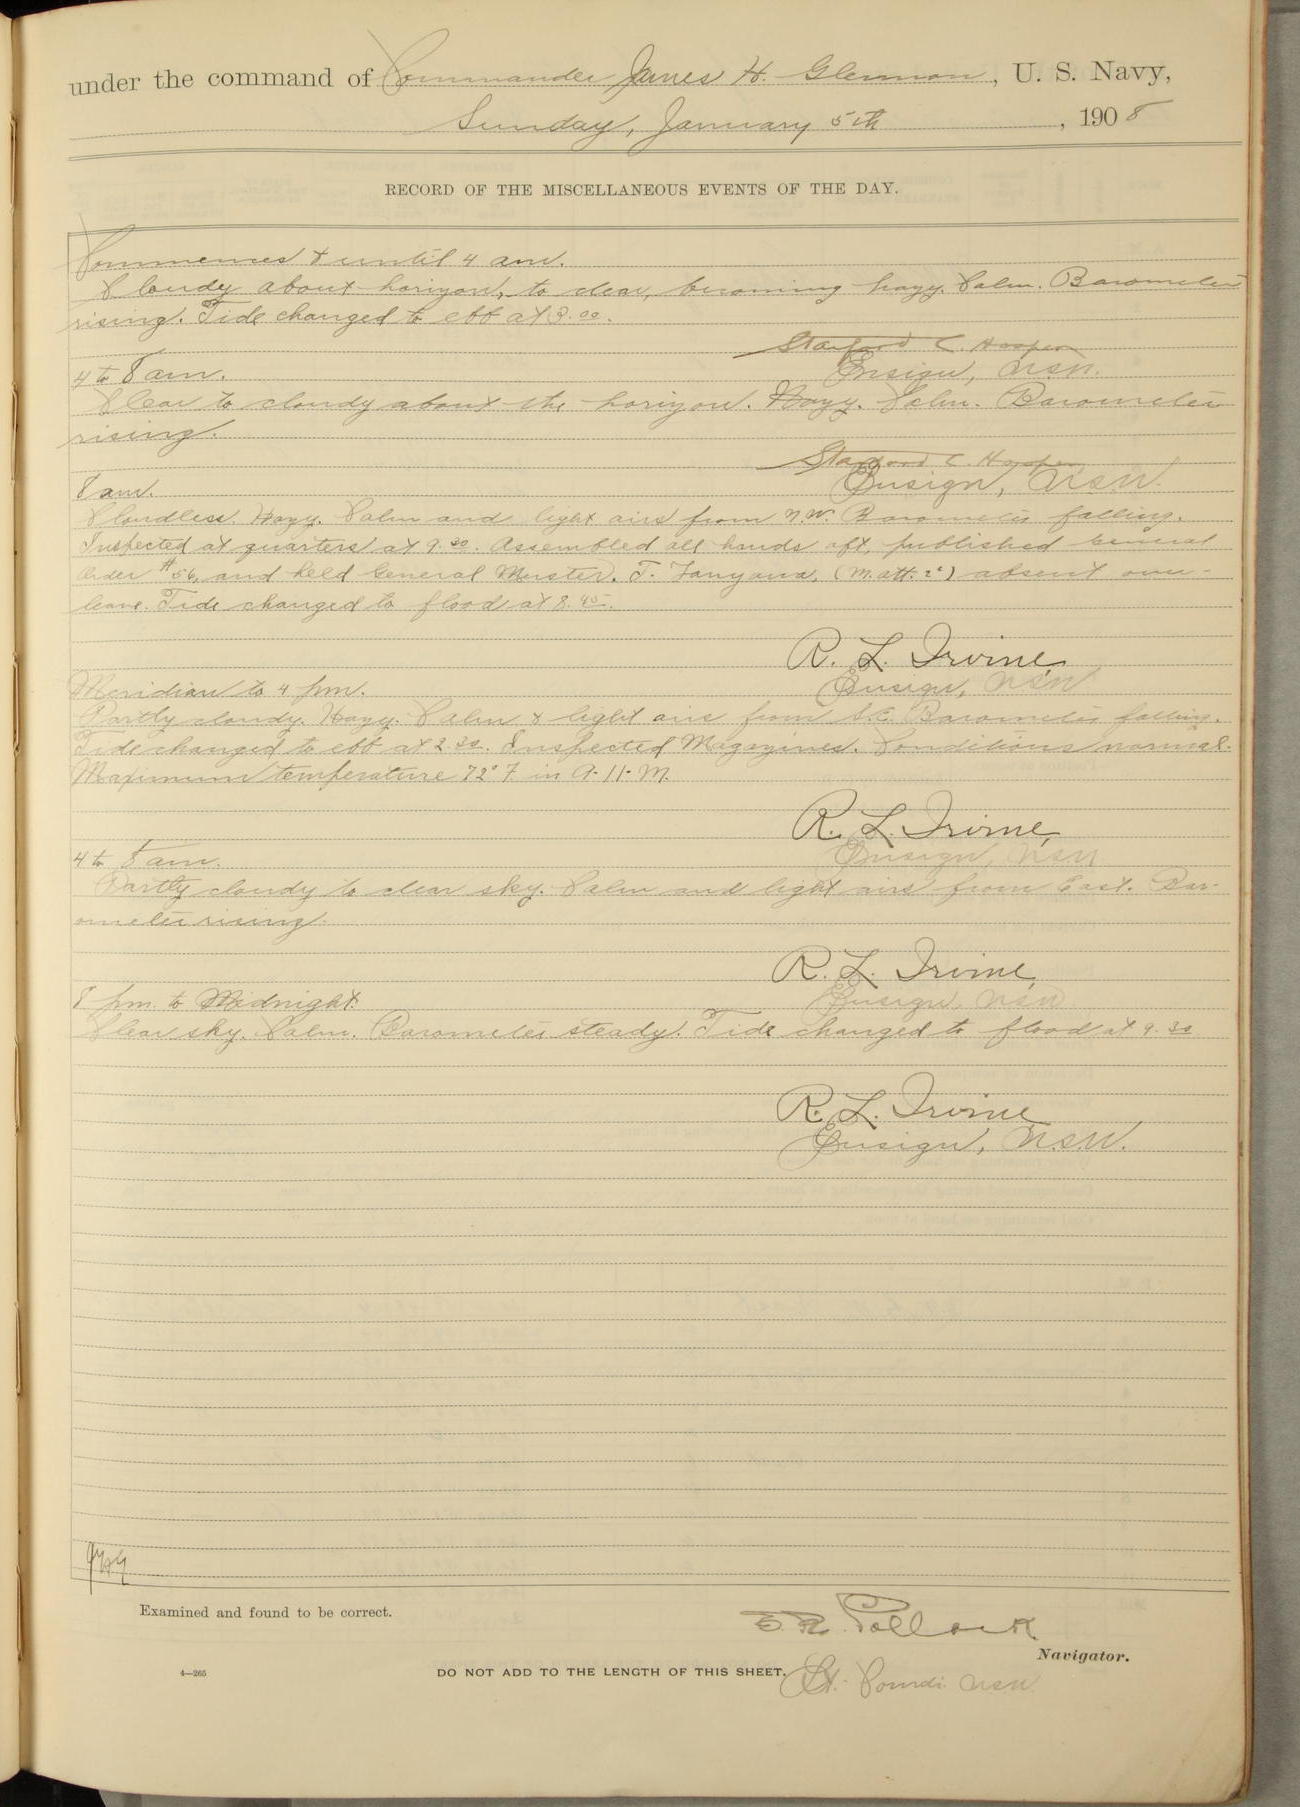 under the command of Commander James H. Glennon, U. S. Navy,
Sunday, January 5th, 1908
RECORD OF THE MISCELLANEOUS EVENTS OF THE DAY.
Commences & until 4 am.
Cloudy about horizon, to clear, becoming hazy. Calm. Barometer
rising. Tide changed to ebb at 3.00.
Stanford C. Hooper
Ensign, USN.
4 to 8 am.
Clear to cloudy about the horizon. Hazy. Calm. Barometer
rising.
Stanford C. Hooper
Ensign, U.S.N.
8 am.
Cloudless. Hazy. Calm and light airs from N.W. Barometer falling.
Inspected at quarters at 9.30. Assembled all hands aft, published General
Order #56, and held General Muster. T. (M. att. 2c) absent over-
leave. Tide changed to flood at 8.45.
R. L. Irvine,
Ensign, USN
Meridian to 4 pm.
Partly cloudy. Hazy. Calm & light airs from Barometer falling.
Tide changed to ebb at 2.30. Inspected Magazines. Conditions normal.
Maximum temperature 72° F in A-11-M.
R. L. Irvine,
Ensign, USN
4 to 8 am.
Partly cloudy to clear sky. Calm and light airs from East. Bar-
ometer rising.
R. L. Irvine,
Ensign, USN
8 pm. to Midnight.
Clear sky. Calm. Barometer steady. Tide changed to flood at 9.30
R. L. Irvine
Ensign, U.S.N.
Examined and found to be correct.
E. R. Pollock
Navigator.
4—265
DO NOT ADD TO THE LENGTH OF THIS SHEET.
Lt. Comdr. USN